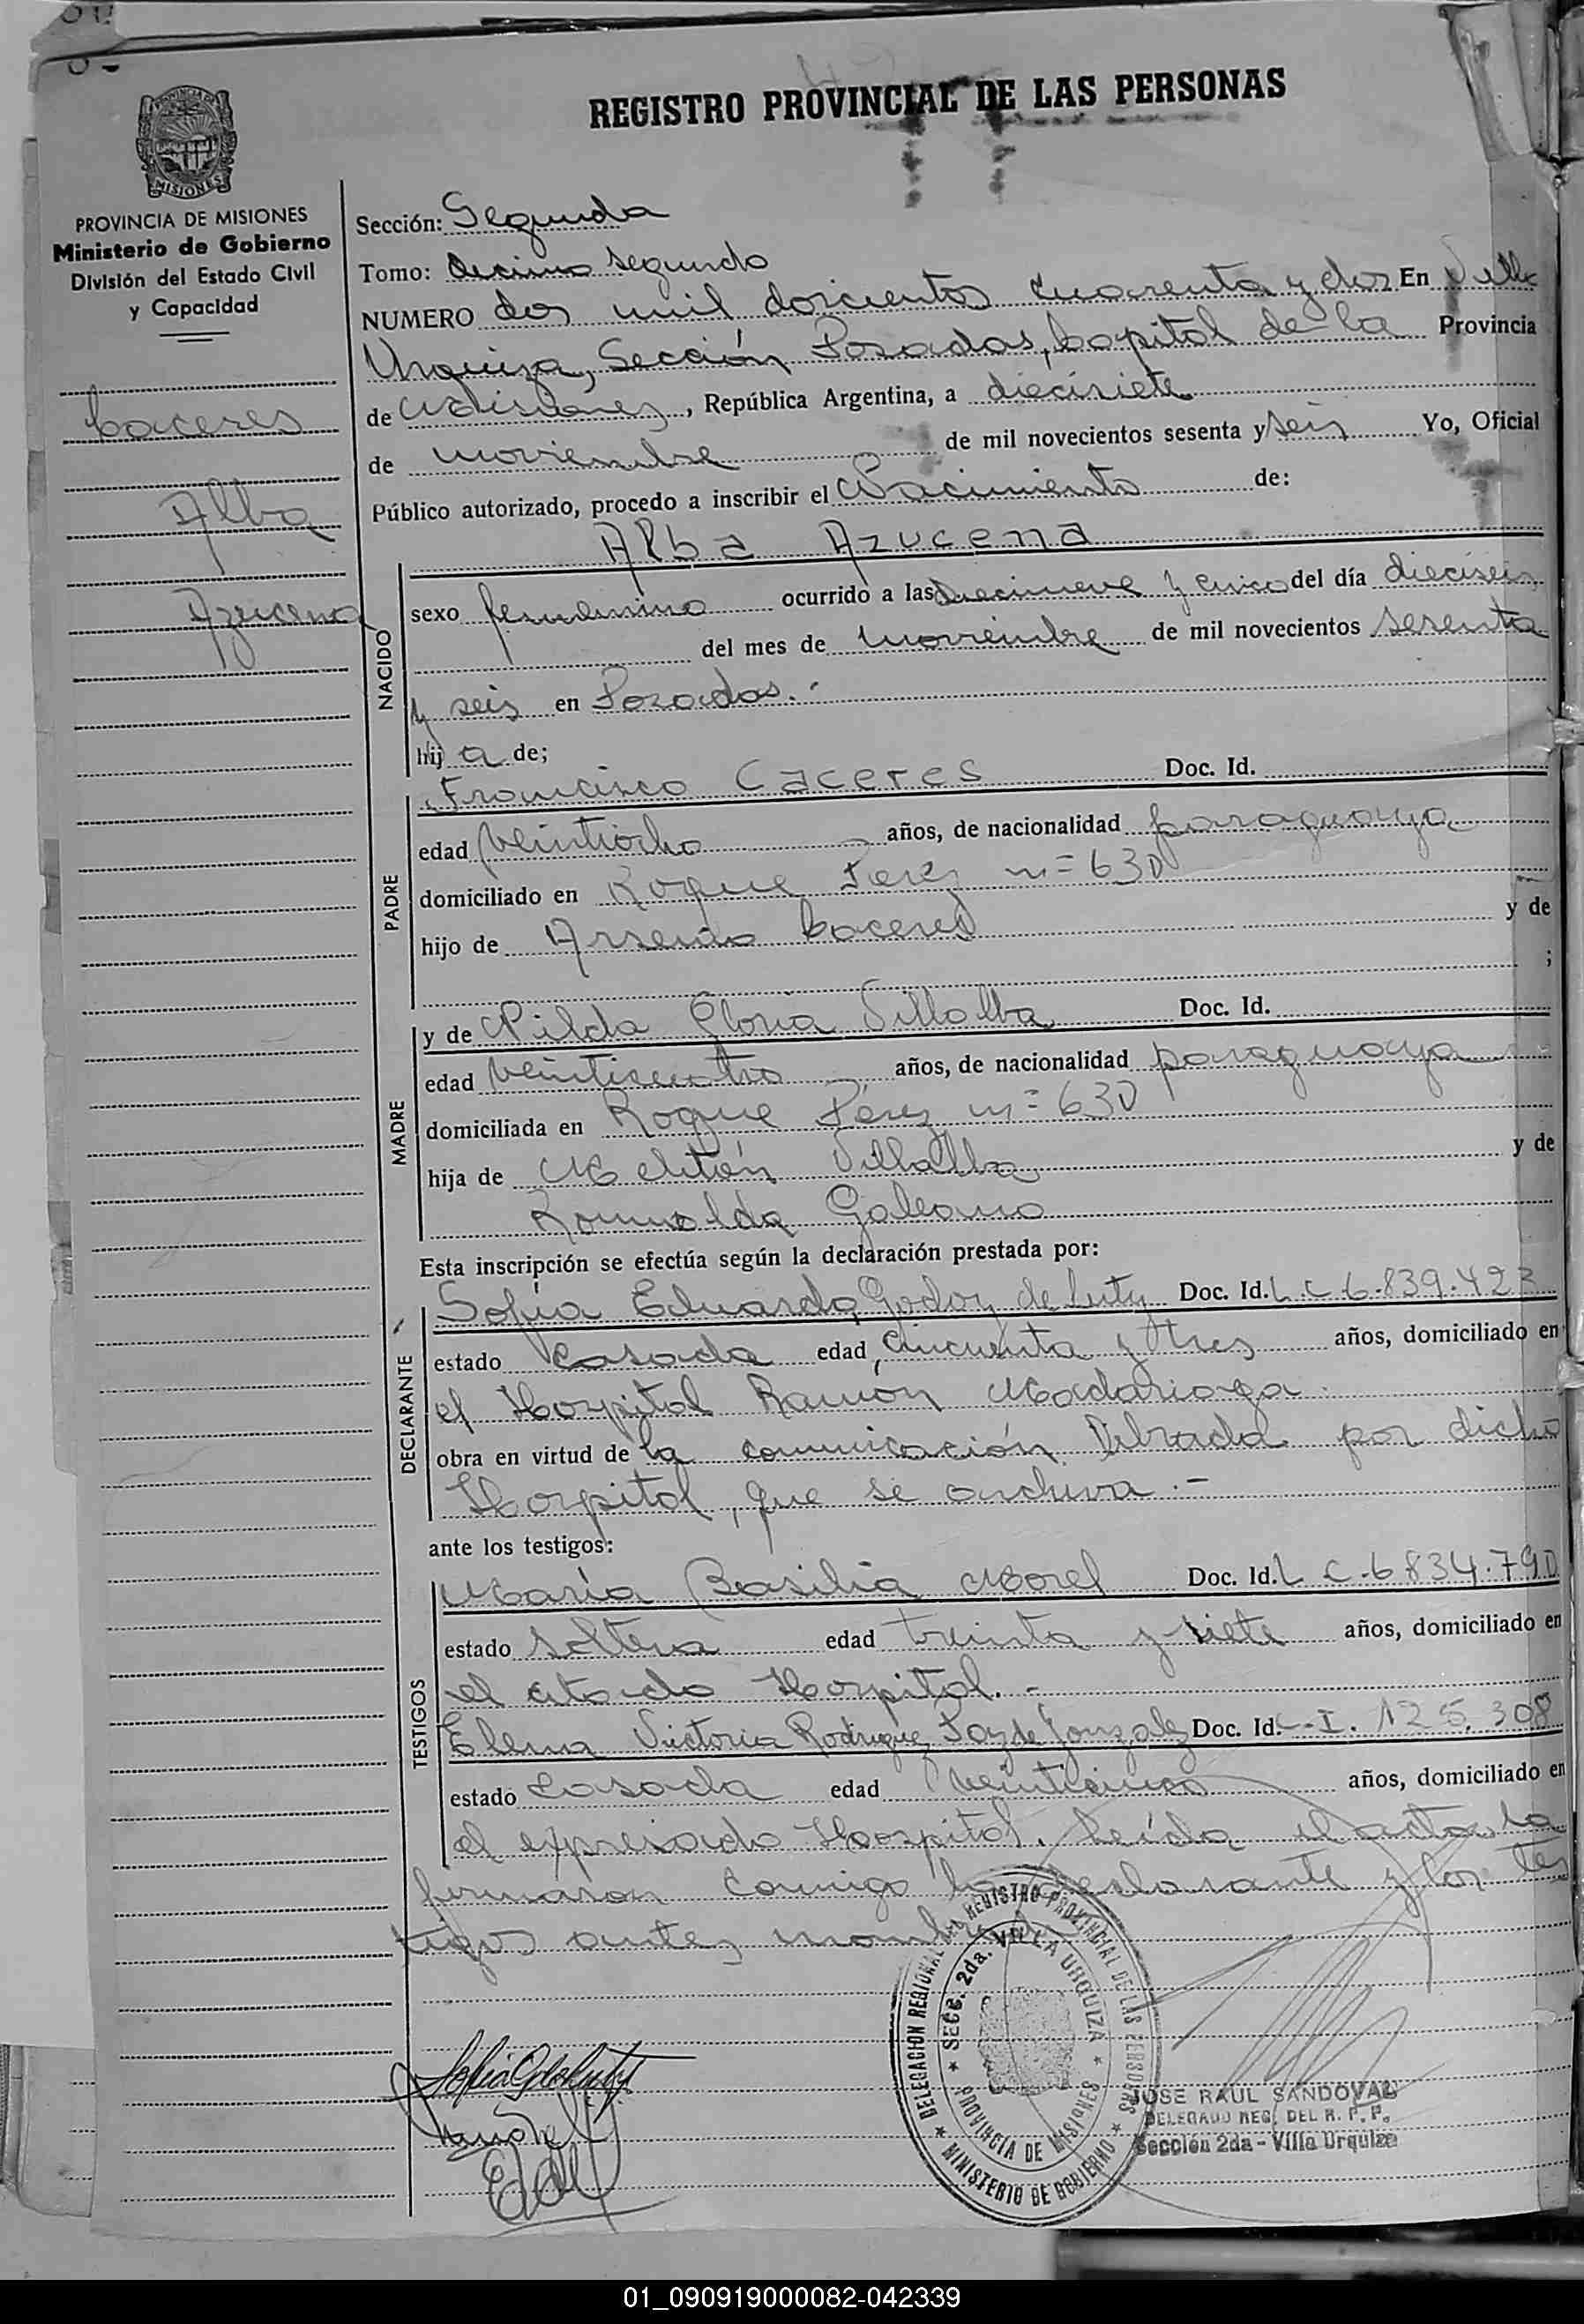 REGISTRO PROVINCIAL DE LAS PERSONAS
PROVINCIA DE MISIONES
MISIONES
PROVINCIA DE MISIONES
Ministerio de Gobierno
División del Estado Civil
y Capacidad
Caceres
Alba
Azucena
Sección: Segunda
Tomo: Decimo segundo
NUMERO dos mil doscientos cuarenta y dos En Villa
Urquiza, Sección Posadas, Capital de la Provincia
de Misiones, República Argentina, a diecisiete
de noviembre de mil novecientos sesenta y seis Yo, Oficial
Público autorizado, procedo a inscribir el Nacimiento de:
Alba Azucena
NACIDO
sexo femenino ocurrido a las diecinueve y cinco del día dieciseis
del mes de noviembre de mil novecientos sesenta
y seis en Posadas.-
hij a de;
PADRE
Francisco Caceres Doc. Id.
edad veintiocho años, de nacionalidad paraguaya
domiciliado en Roque Perez n= 630
hijo de Arsenio Caceres y de
;
MADRE
y de Nilda Gloria Villalba Doc. Id.
edad veinticuatro años, de nacionalidad paraguaya
domiciliada en Roque Pérez n= 630
hija de Melitón Villalba y de
Romualda Galeano
Esta inscripción se efectúa según la declaración prestada por:
DECLARANTE
Sofia Eduarda Godoy de Luty Doc. Id. L.C 6.839.423
estado Casada edad cincuenta y tres años, domiciliado en
el Hospital Ramón Madariaga.
obra en virtud de la comunicación librada por dicho
Hospital, que se archiva.-
ante los testigos:
TESTIGOS
María Basilia Morel Doc. Id. L C-6834.790
estado soltera edad treinta y siete años, domiciliado en
el citado Hospital.-
Elena Victoria Rodriguez de Gonzalez Doc. Id. C.I. 125.308
estado Casada edad veinticinco años, domiciliado en
el expresado Hospital. Leída el acta la
firmaron conmigo la declarante y los tes
tigos antes
DELEGACION REGIONAL DEL REGISTRO PROVINCIAL DE LAS PERSONAS
★ MINISTERIO DE GOBIERNO ★
★ SECC. 2da. VILLA URQUIZA ★
PROVINCIA DE MISIONES
JOSE RAUL SANDOVAL
DELEGADO REG. DEL R. P. P.
Sección 2da - Villa Urquiza
01_090919000082-042339